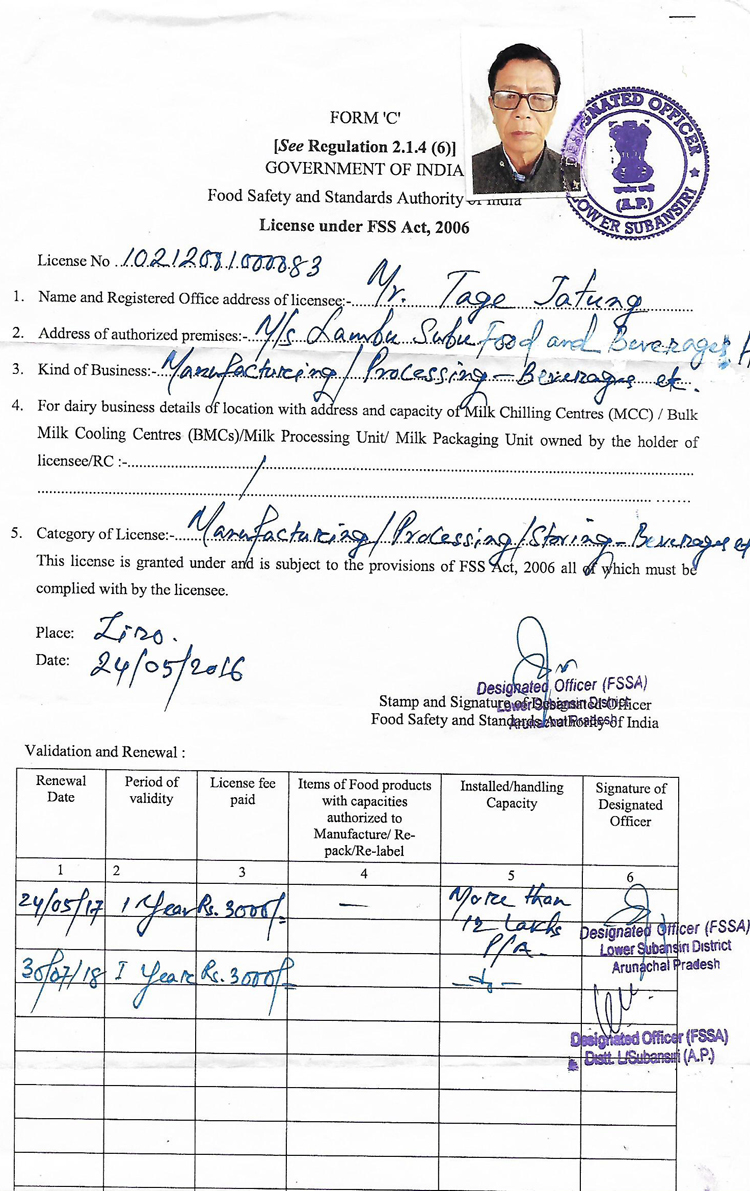 FORM 'C'
[See Regulation 2.1.4 (6)]
GOVERNMENT OF INDIA
Food Safety and Standards Authority of India
License under FSS Act, 2006
DESIGNATED OFFICER
(A.P.)
LOWER SUBANSIRI
License No 10212081000083
1. Name and Registered Office address of licensee:- Mr. Tage Tatung
2. Address of authorized premises:- M/s Lambu Subu Food and Beverages
3. Kind of Business:- Manufacturing / Processing - Beverages etc.
4. For dairy business details of location with address and capacity of Milk Chilling Centres (MCC) / Bulk
Milk Cooling Centres (BMCs)/Milk Processing Unit/ Milk Packaging Unit owned by the holder of
licensee/RC :-
5. Category of License:- Manufacturing / Processing / Storing - Beverages et
This license is granted under and is subject to the provisions of FSS Act, 2006 all of which must be
complied with by the licensee.
Place: Ziro.
Date: 24/05/2016
Designated Officer (FSSA)
Lower Subansiri District
Arunachal Pradesh
Stamp and Signature of Designated Officer
Food Safety and Standards Authority of India
Validation and Renewal :
Renewal Date
Period of validity
License fee paid
Items of Food products with capacities authorized to Manufacture/ Re-pack/Re-label
Installed/handling Capacity
Signature of Designated Officer
1 2 3 4 5 6
24/05/17 1 Year Rs. 3000/- — More than
12 Lakhs
P/A.
Designated Officer (FSSA)
Lower Subansiri District
Arunachal Pradesh
30/07/18 1 Year Rs. 3000/- -do-
Designated Officer (FSSA)
Distt. L/Subansiri (A.P.)